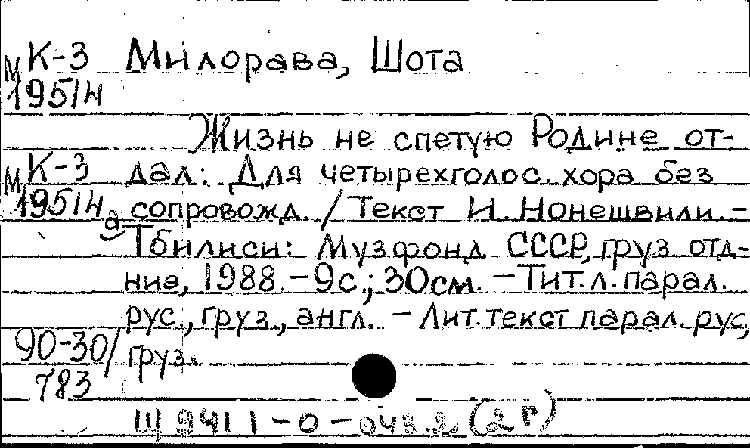 М К-3 Милорава, Шота
1951н
Жизнь не спетую Родине от-
М К-3 дал: Для четырехголос. хора без
1951н д сопровожд. / Текст И. Нонешвили. -
Тбилиси: Музфонд СССР, груз отд-
ние, 1988. - 9с.; 30см. - Тит. л. парал.
рус., груз., англ. - Лит. текст парал. рус,
90-30/ груз.
783
Щ 9411-0-048.2 (2г)